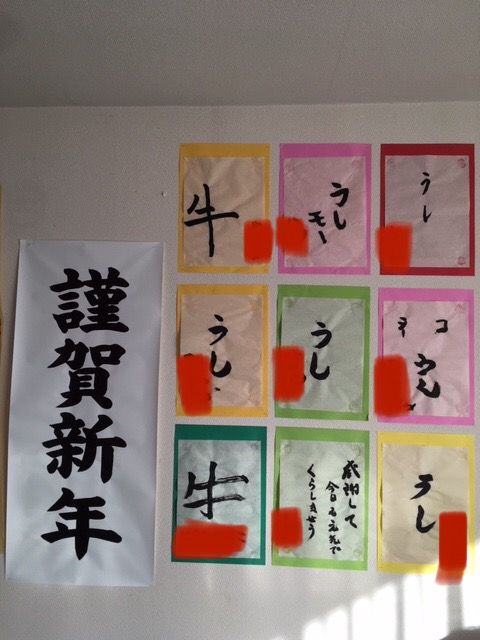 謹賀新年
牛
うし
モー
うし
うし
うし
牛
感謝して
今日も元気で
くらしませう
うし